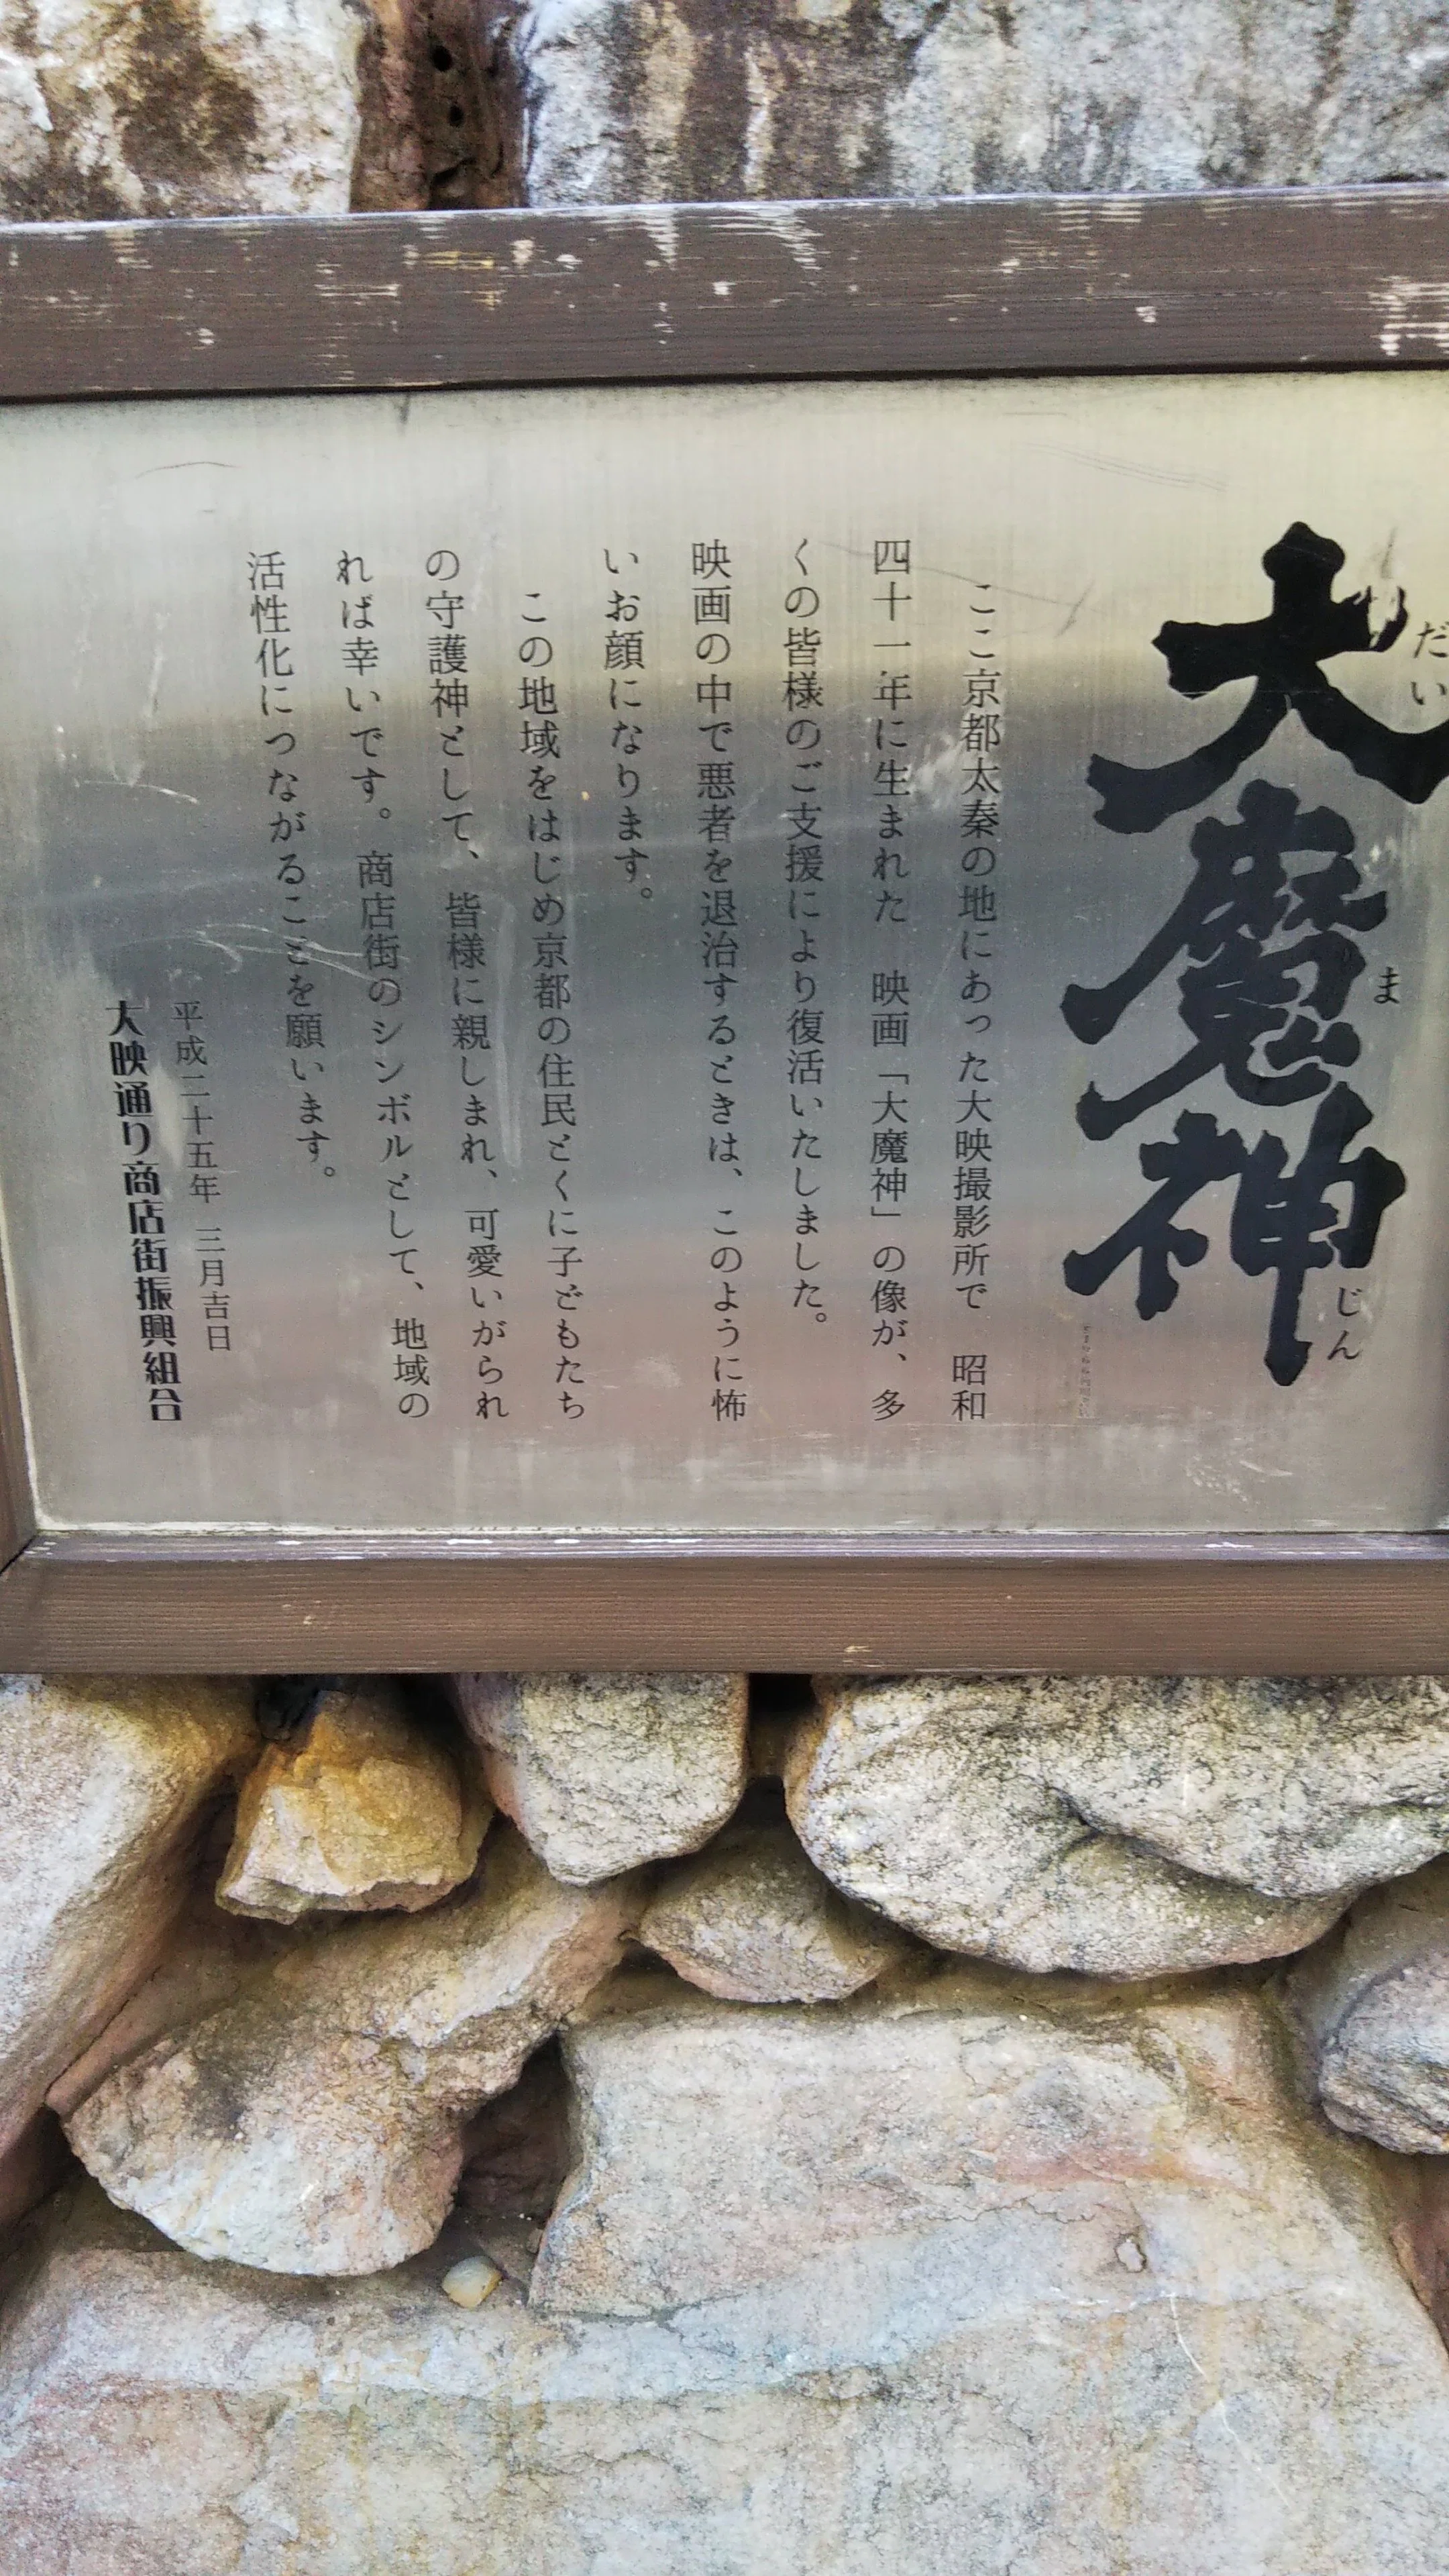 大魔神
だい
ま
じん
ここ京都太秦の地にあった大映撮影所で 昭和
四十一年に生まれた 映画「大魔神」の像が、多
くの皆様のご支援により復活いたしました。
映画の中で悪者を退治するときは、このように怖
いお顔になります。
この地域をはじめ京都の住民とくに子どもたち
の守護神として、皆様に親しまれ、可愛いがられ
れば幸いです。商店街のシンボルとして、地域の
活性化につながることを願います。
平成二十五年 三月吉日
大映通り商店街振興組合